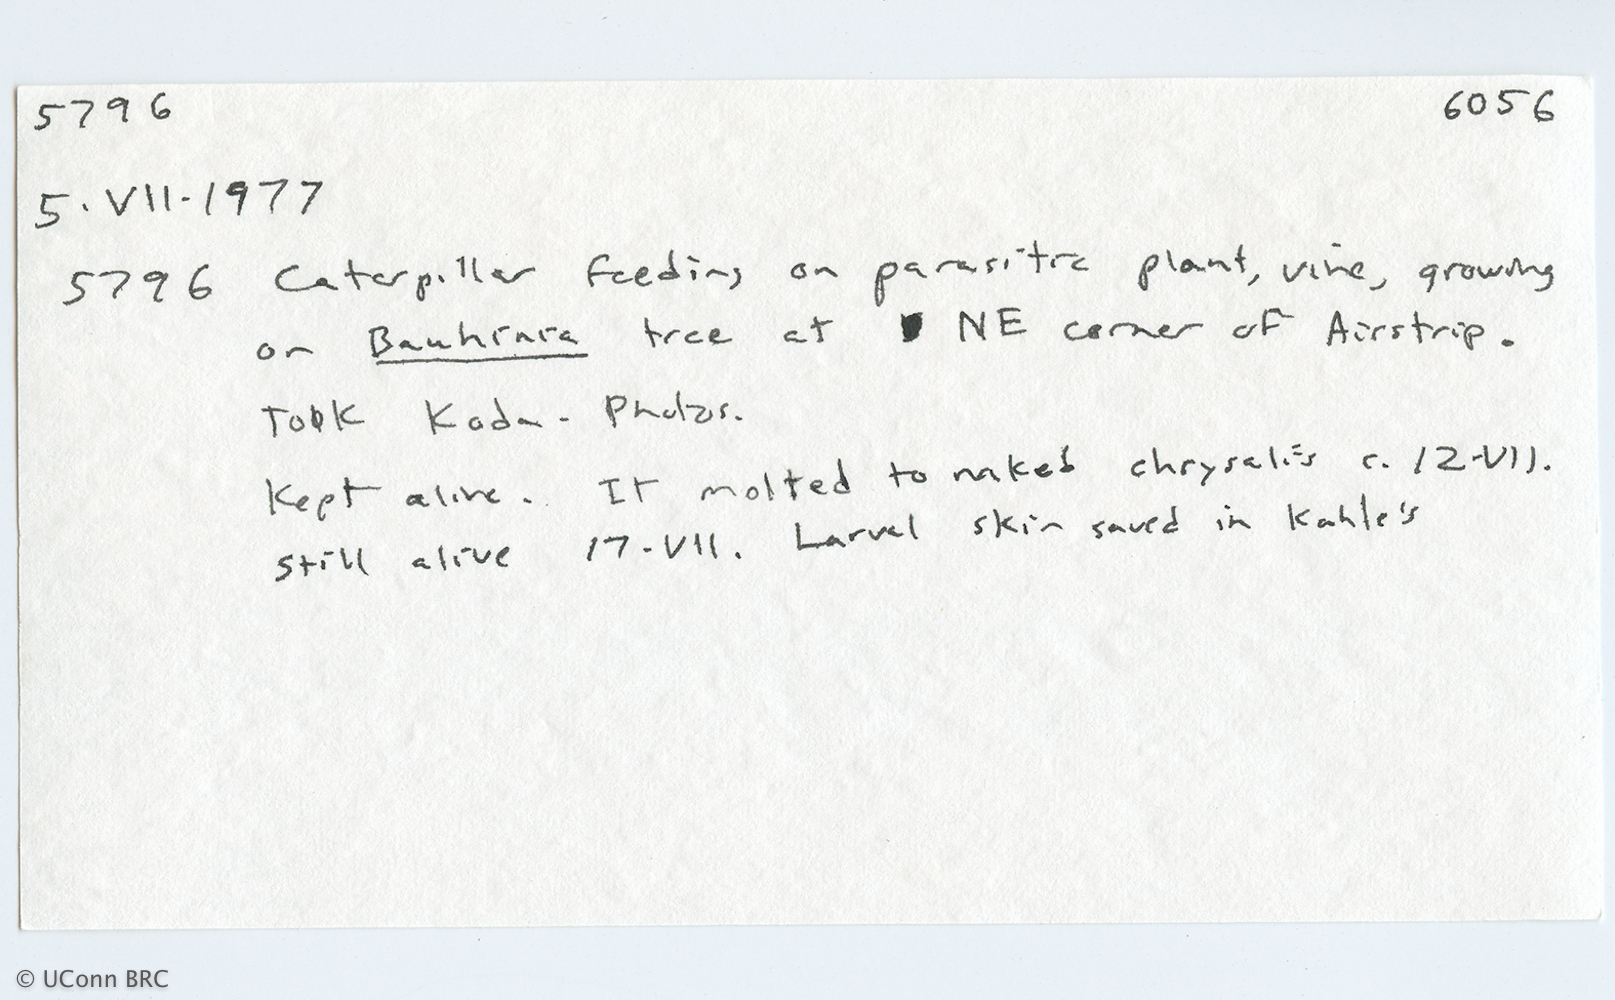 5796 6056
5.VII.1977
5796 Caterpillar feeding on parasitic plant, vine, growing
on Bauhinia tree at NE corner of Airstrip.
Took Koda- Photos.
Kept alive. It molted to naked chrysalis c. 12-VII.
still alive 17-VII. Larval skin saved in Kahle's
© UConn BRC